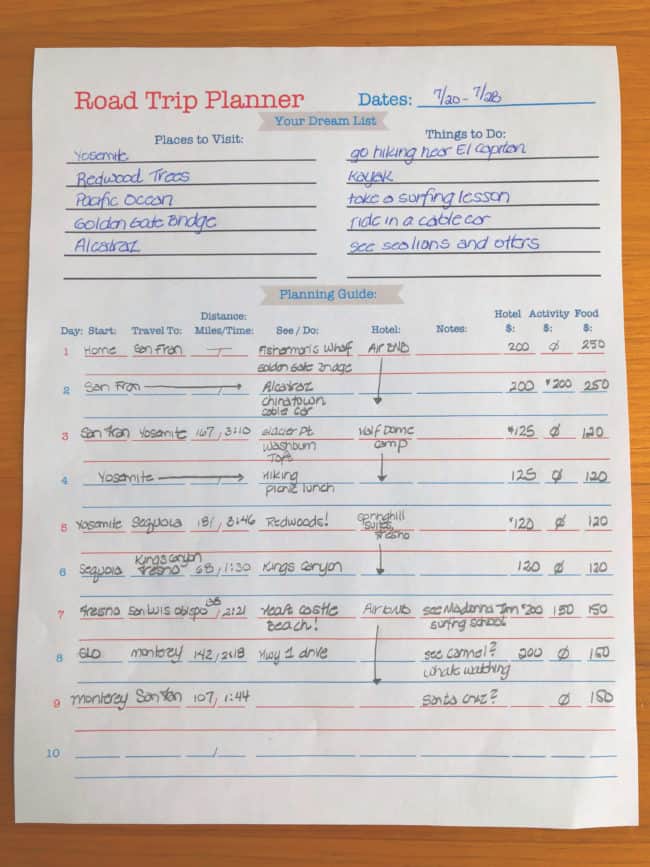 Road Trip Planner Dates: 7/20 - 7/28
Your Dream List
Places to Visit: Things to Do:
Yosemite go hiking near El Capitan
Redwood Trees Kayak
Pacific Ocean take a surfing lesson
Golden Gate Bridge ride in a cable car
Alcatraz see sea lions and otters
Planning Guide:
Distance: Hotel Activity Food
Day: Start: Travel To: Miles/Time: See / Do: Hotel: Notes: $: $: $:
1 Home San Fran / Fisherman's Wharf Air BNB 200 Ø 250
Golden Gate Bridge
2 San Fran / Alcatraz 200 $200 250
Chinatown
cable car
3 San Fran Yosemite 167, 3:10 Glacier Pt Half Dome $125 Ø 120
Washburn camp
4 Yosemite Hiking 125 Ø 120
picnic lunch
5 Yosemite Sequoia 181, 3:46 Redwoods! Springhill $120 Ø 120
suites,
Fresno
Kings Canyon
6 Sequoia Fresno 68, 1:30 Kings Canyon 120 Ø 120
7 Fresno San Luis Obispo 138, 2:21 Hearst Castle Air BNB see Madonna Inn $200 150 150
Beach! surfing school
8 SLO Monterey 142, 2:18 Hwy 1 drive see Carmel? 200 Ø 150
whale watching
9 Monterey San Fran 107, 1:44 Santa Cruz? Ø 150
10 /